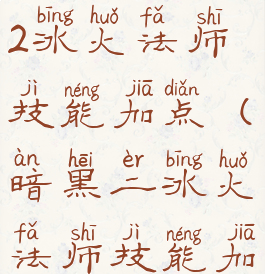 bīng huǒ fǎ shī
2冰火法师
jì néng jiā diǎn
技能加点（
àn hēi èr bīng huǒ
暗黑二冰火
fǎ shī jì néng jiā
法师技能加